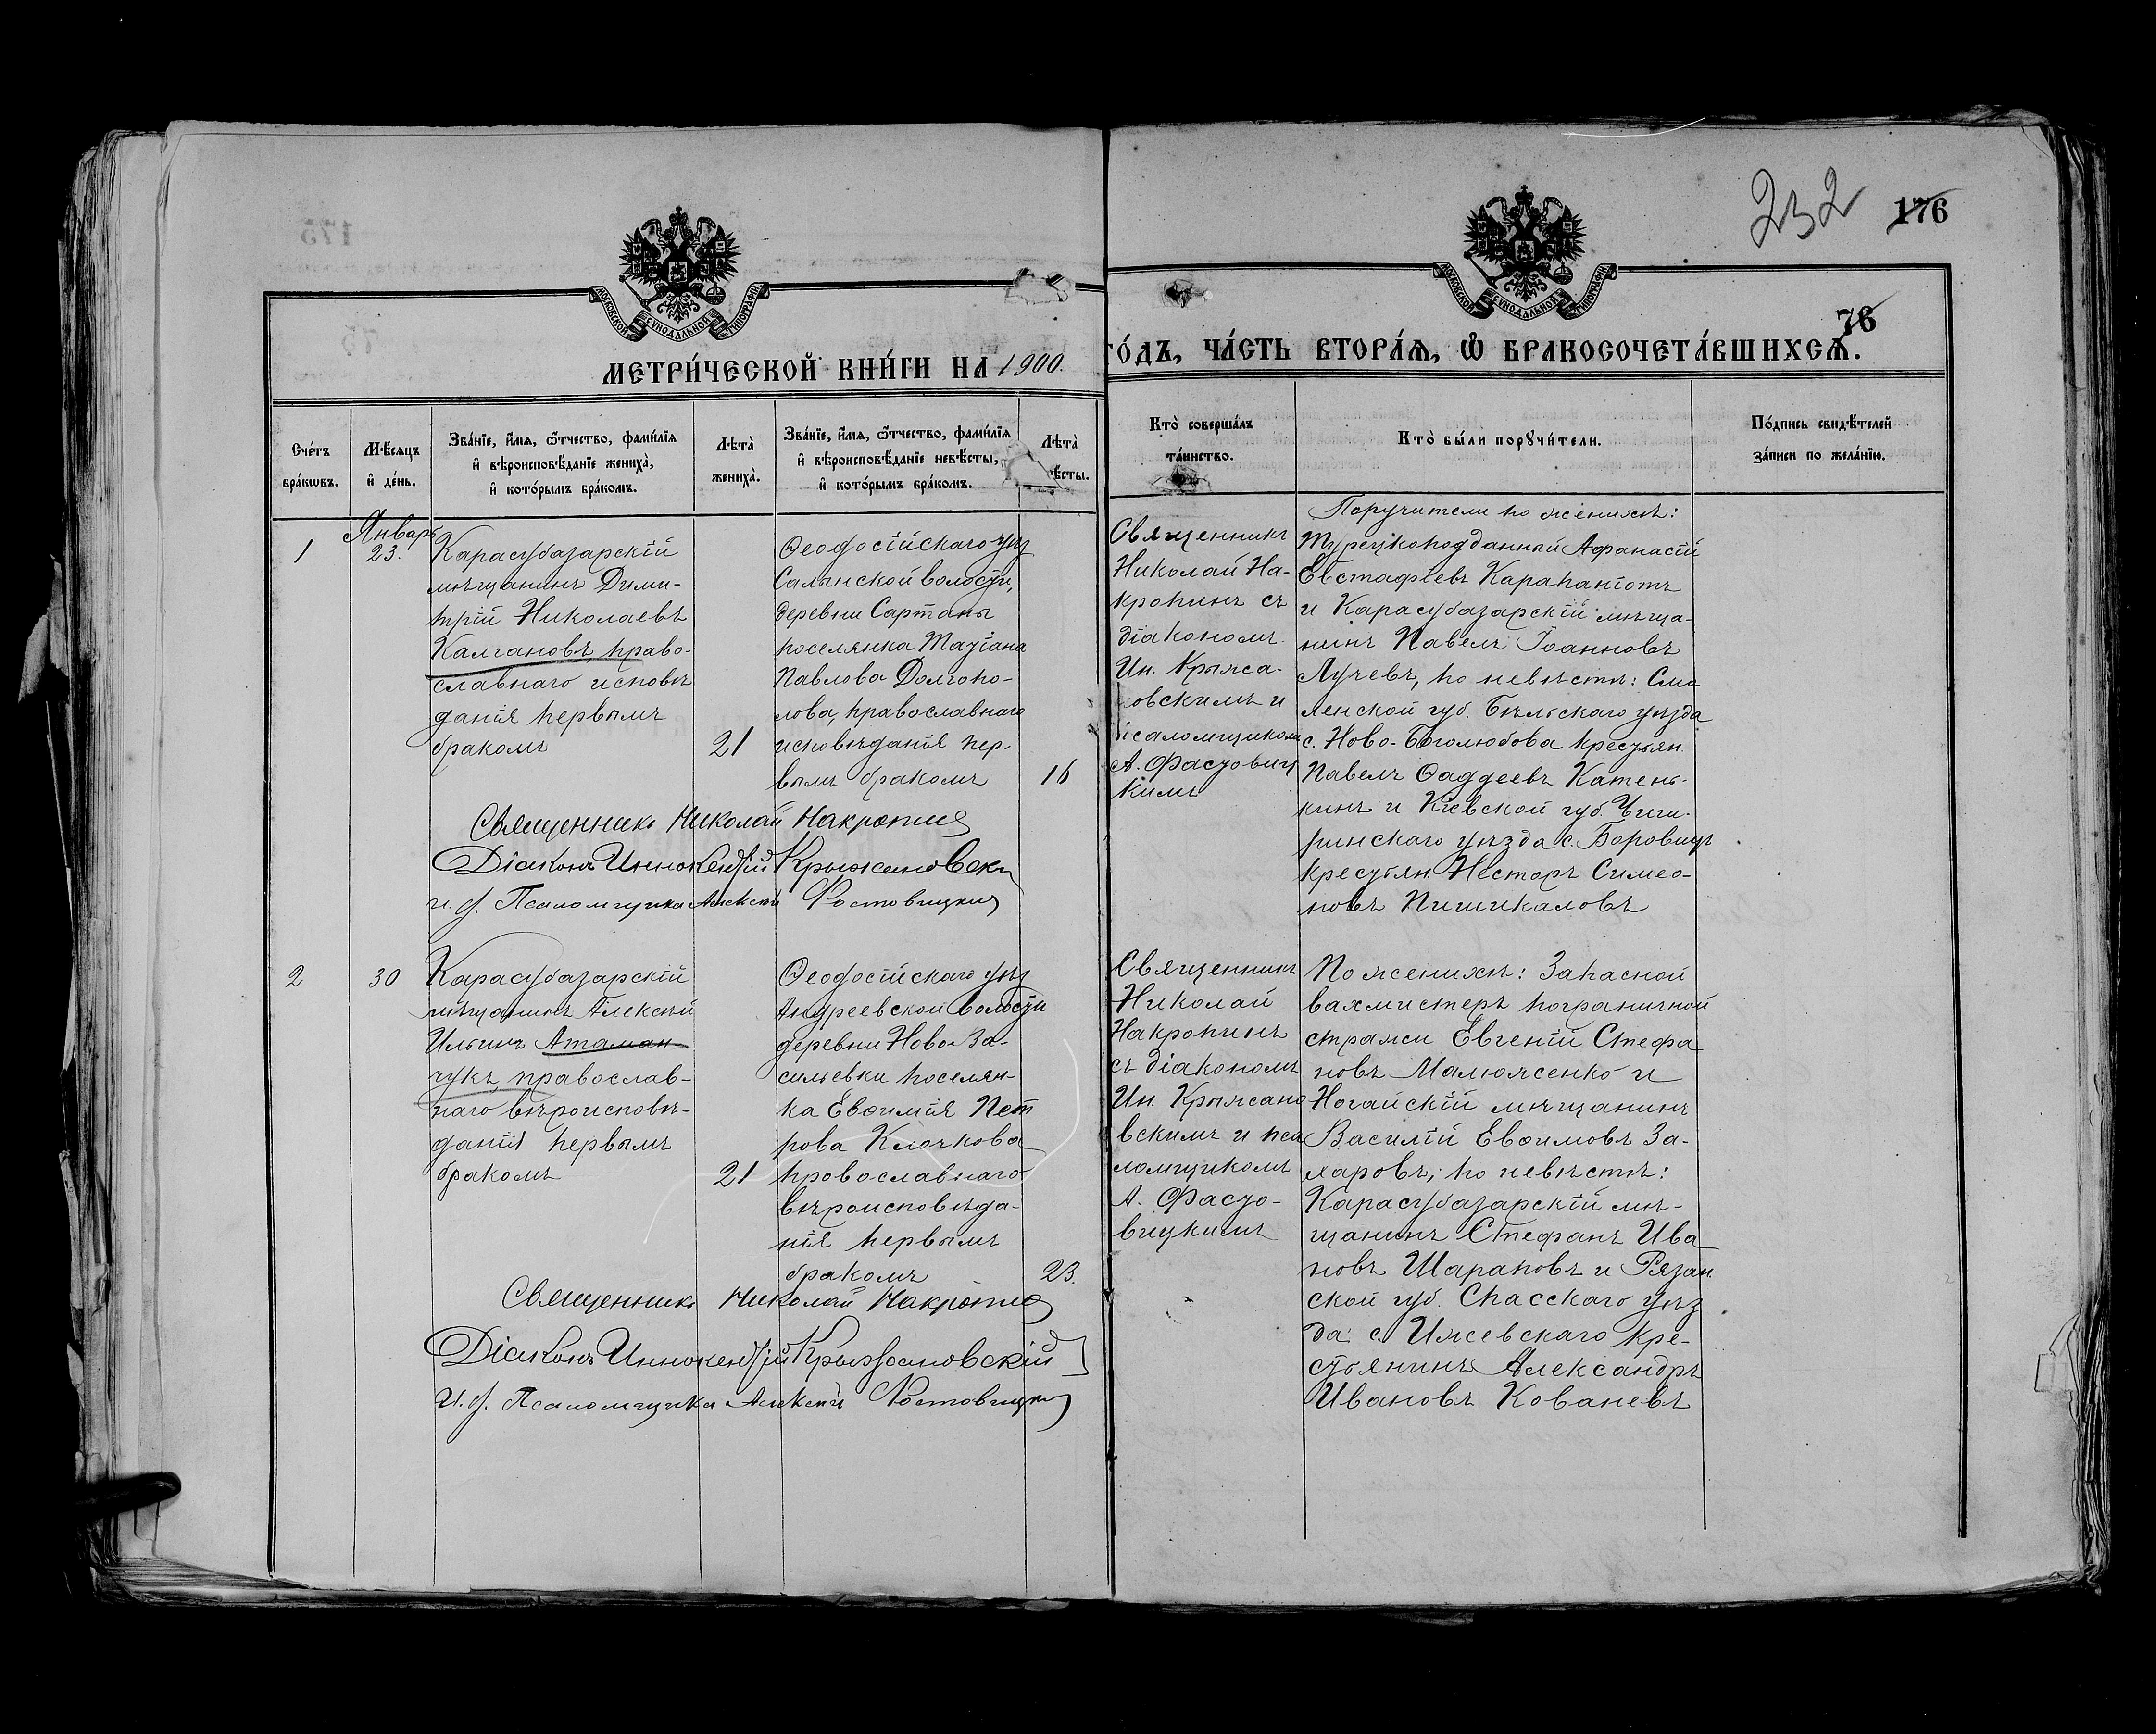 232 176
МОСКОВСКОЙ СѴНОДАЛЬНОЙ ТИПОГРАФІИ
МОСКОВСКОЙ СѴНОДАЛЬНОЙ ТИПОГРАФІИ
76
МЕТРИ́ЧЕСКОЙ КНИ́ГИ НА 1900.
ГО́ДЪ, ЧА́СТЬ ВТОРА́Ѧ, Ѽ БРАКОСОЧЕТА́ВШИХСѦ.
Сче́тъ
бра́кωвъ.
Мѣ́сѧцъ
и҆ де́нь.
Зва́нїе, и҆́мѧ, ѻ҆́тчество, фами́лїѧ
и҆ вѣроисповѣ́данїе жениха̀,
и҆ кото́рымъ бра́комъ.
Лѣта̀
жениха̀.
Зва́нїе, и҆́мѧ, ѻ҆́тчество, фами́лїѧ
и҆ вѣроисповѣ́данїе невѣ́сты,
и҆ кото́рымъ бра́комъ.
Лѣта̀
ѣ́сты.
Кто̀ соверша́лъ
та́инство.
Кто̀ бы́ли порꙋчи́тели.
По́дпись свидѣ́телей
за́писи по жела́нїю.
1
Январь
23.
Карасубазарскій
мѣщанинъ Дими-
трій Николаевъ
Калгановъ, право-
славнаго исповѣ
данія первымъ
бракомъ
21
Ѳеодосійскаго уѣз
Салынской волости,
деревни Сартаны
поселянка Татіана
Павлова Долгопо-
лова, православнаго
исповѣданія пер-
вымъ бракомъ
16
Священникъ
Николай На-
кропинъ съ
діакономъ
Ин. Крыжа-
новскимъ и
псаломщикомъ
А.
кимъ
Поручители по женихѣ:
Турецкоподданный Афанасій
Евстафіевъ Карапаніотъ
и Карасубазарскій мѣща-
нинъ Павелъ Іоанновъ
Лучевъ, по невѣстѣ: Смо
ленской губ. Бѣльскаго уѣзда
с. Ново-Боголюбова крестьян.
Павелъ Ѳаддеевъ Катень-
кинъ и Кіевской губ. Чиги-
ринскаго уѣзда с. Боровицъ
крестьян. Несторъ Симео-
новъ Пишикаловъ
Священникъ Николай Накропинъ
Діаконъ Иннокентій Крыжановскій
и. д. Псаломщика Алексѣй
2
30
Карасубазарскій
мѣщанинъ Алексѣй
Ильинъ Атаман-
чукъ, православ-
наго вѣроисповѣ-
данія первымъ
бракомъ
21
Ѳеодосійскаго уѣз
Андреевской волости
деревни Ново-Ва-
сильевки поселян-
ка Евѳимія Пет
рова Клочкова
провославнаго
вѣроисповѣда-
нія первымъ
бракомъ
23.
Священникъ
Николай
Накропинъ
съ діакономъ
Ин. Крыжано
вскимъ и пса
ломщикомъ
А.
вицкимъ
По женихѣ: Запасной
вахмистеръ пограничной
стражи Евгеній Стефа
новъ Малюженко и
Ногайскій мѣщанинъ
Василій Евѳимовъ За-
харовъ; по невѣстѣ:
Карасубазарскій мѣ-
щанинъ Стефанъ Ива
новъ Шараповъ и Рязан.
ской губ. Спасскаго уѣз
да с. Ижевскаго кре-
стьянинъ Александръ
Ивановъ Кованевъ
Священникъ Николай Накропинъ
Діаконъ Иннокентій Крыжановскій
И. д. Псаломщика Алексѣй